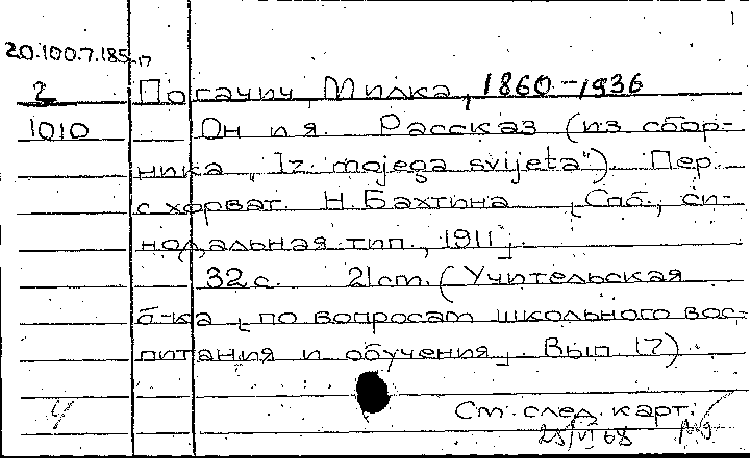 1
20.100.7.185.17
2 Погачич, Милка, 1860-1936
1010 Он и я. Рассказ (из сбор-
ника „Iz mojega svijeta"). Пер.
с хорват. Н. Бахтина [Спб., си-
нодальная тип., 1911].
32 с. 21 cm. (Учительская
б-ка [по вопросам школьного вос-
питания и обучения]. Вып 17).
См. след. карт.
4